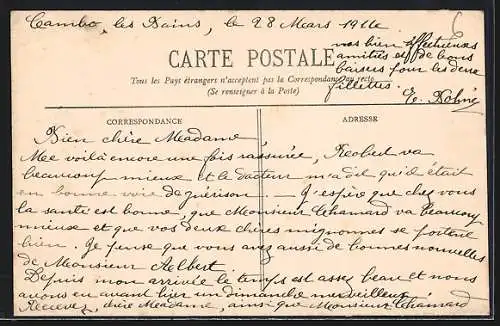 Cambo, les Bains, le 28 Mars 1916
CARTE POSTALE
Tous les Pays étrangers n'acceptent pas la Correspondance au recto
(Se renseigner à la Poste)
CORRESPONDANCE
ADRESSE
Bien chère Madame
Me voilà encore une fois rassurée, Robert va
beaucoup mieux et le docteur m'a dit qu'il était
en bonne voie de guérison. — J'espère que chez vous
la santé est bonne, que Monsieur Chamard va beaucoup
mieux et que vos deux chères mignonnes se portent
bien. Je pense que vous avez aussi de bonnes nouvelles
de Monsieur Albert
Depuis mon arrivée le temps est assez beau et nous
avons eu avant hier un dimanche merveilleux
Recevez, chère Madame, ainsi que Monsieur Chamard
nos bien affectueuses
amitiés et de bons
baisers pour les deux
fillettes.